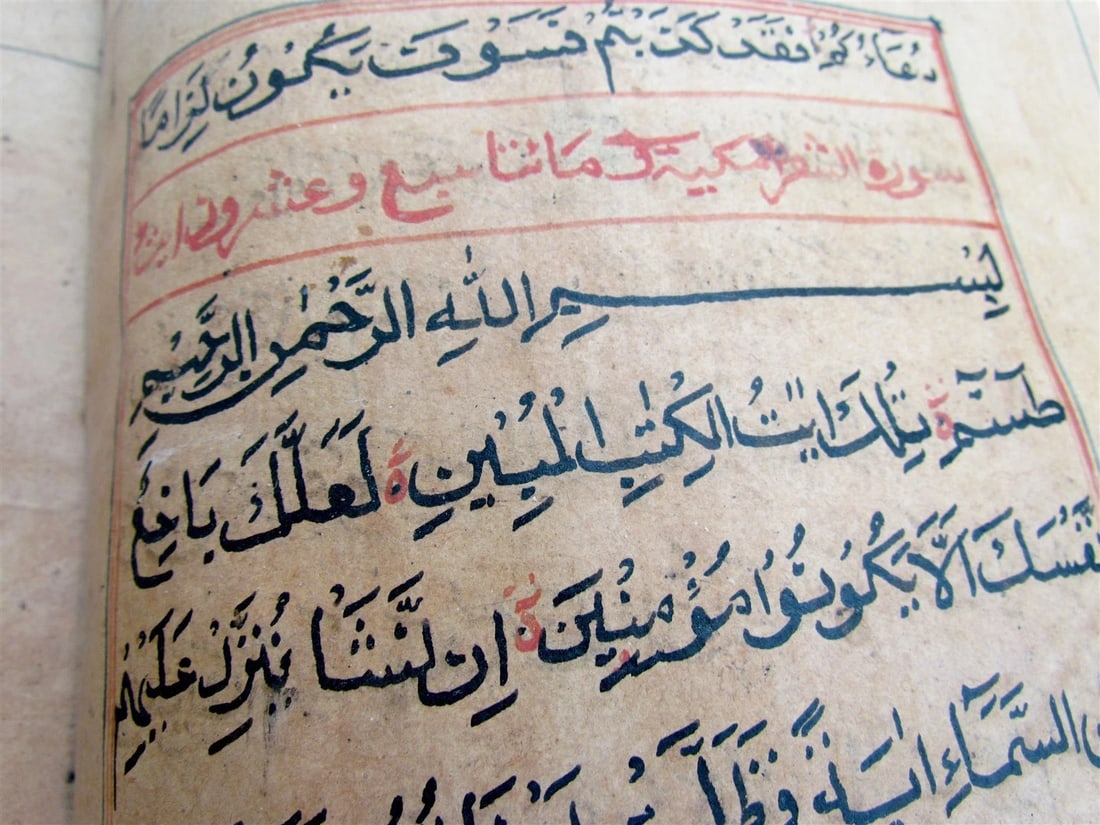 دُعَاءُكُمْ فَقَدْ كَذَّبْتُمْ فَسَوْفَ يَكُونُ لِزَامًا
سورة الشعرا مكية وهي مائتا سبع وعشرون اية
بِسْمِ اللّٰهِ الرَّحْمٰنِ الرَّحِيْمِ
طٰسٓمٓ تِلْكَ اٰيٰتُ الْكِتٰبِ الْمُبِيْنِ لَعَلَّكَ بَاخِعٌ
نَّفْسَكَ اَلَّا يَكُوْنُوْا مُؤْمِنِيْنَ اِنْ نَّشَاْ نُنَزِّلْ عَلَيْهِمْ
السَّمَآءِ اٰيَةً فَظَلَّتْ